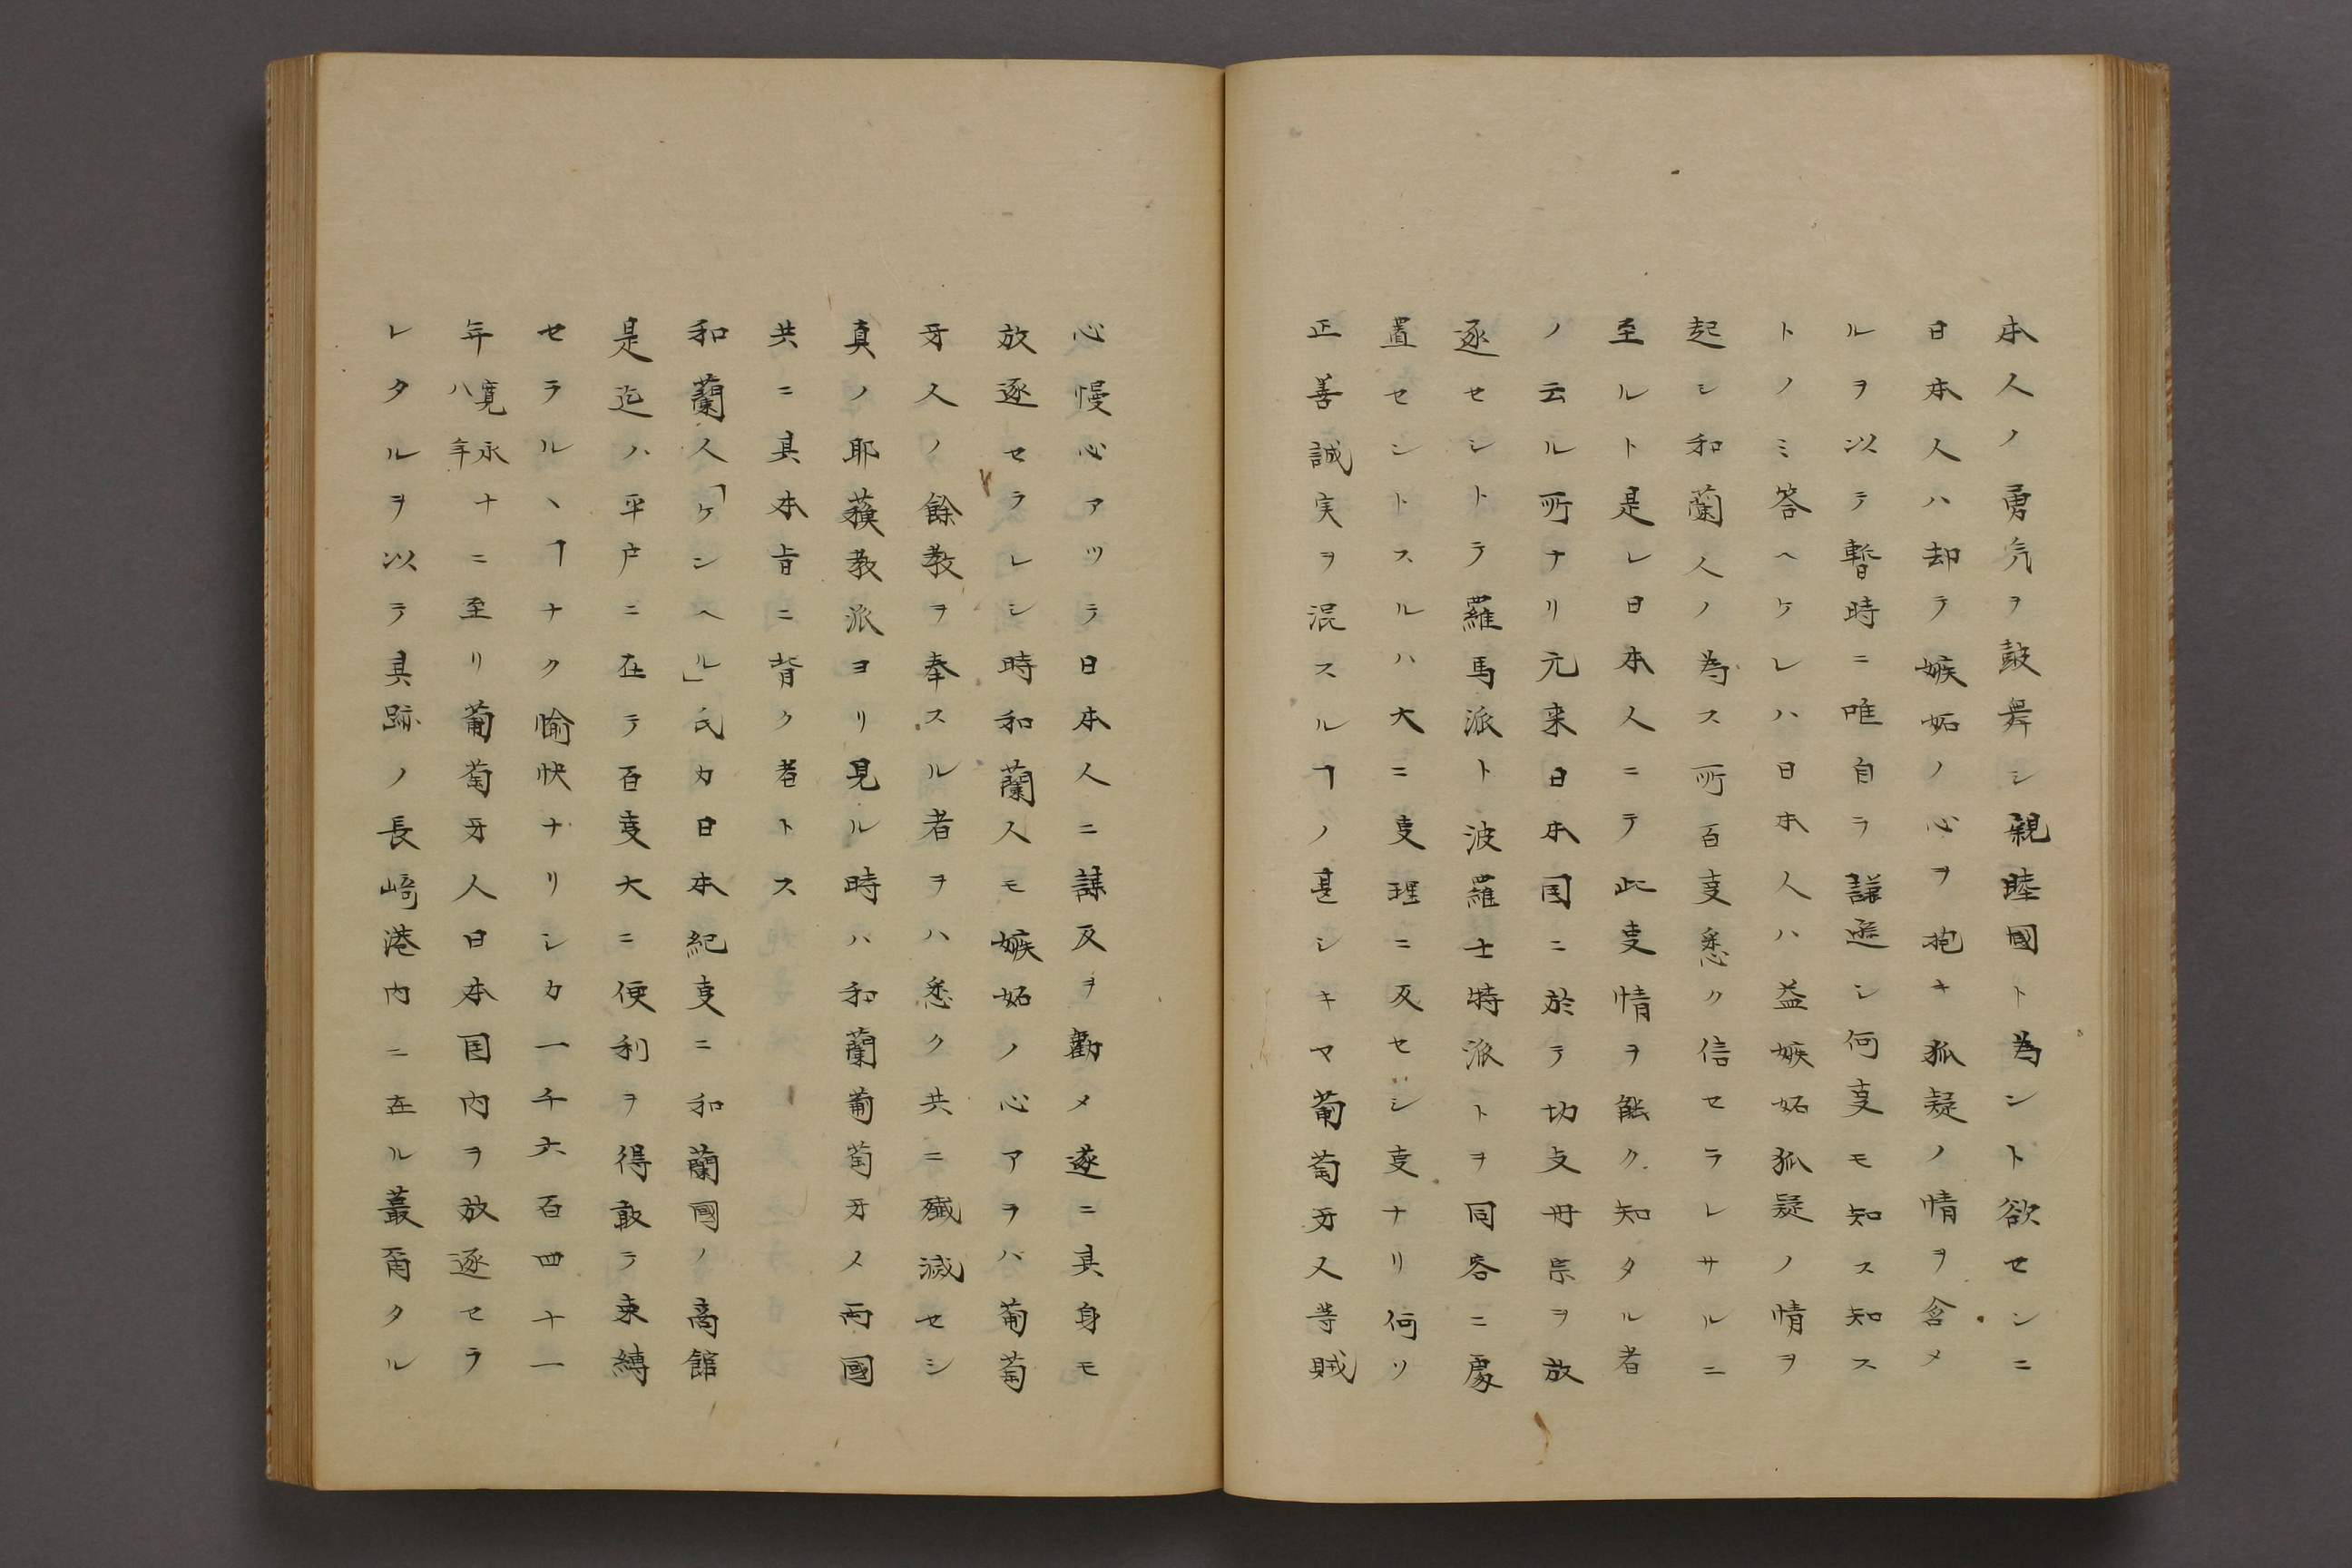 本人ノ勇気ヲ鼓舞シ親睦國ト為ント欲センニ
日本人ハ却テ嫉妬ノ心ヲ抱キ狐疑ノ情ヲ含メ
ルヲ以テ暫時ニ唯自ラ謙遜シ何叓モ知ス知ス
トノミ答ヘケレハ日本人ハ益嫉妬狐疑ノ情ヲ
起シ和蘭人ノ為ス所百叓悉ク信セラレサルニ
至ルト是レ日本人ニテ此叓情ヲ能ク知タル者
ノ云ル所ナリ元来日本国ニ於テ切支丹宗ヲ放
逐セシトテ羅馬派ト波羅士特派トヲ同容ニ處
置セシトスルハ大ニ叓理ニ反セシ叓ナリ何ソ
正善誠実ヲ混スルヿノ甚シキマ葡萄牙又等賊
心慢心アツテ日本人ニ謀反ヲ勸メ遂ニ其身モ
放逐セラレシ時和蘭人モ嫉妬ノ心アラバ葡萄
牙人ノ餘教ヲ奉スル者ヲハ悉ク共ニ殱滅セシ
真ノ耶蘓教派ヨリ見ル時ハ和蘭葡萄牙ノ両國
共ニ其本旨ニ背ク者トス
和蘭人「ケンヘル」氏カ日本紀叓ニ和蘭國ノ商館
是迄ハ平戸ニ在テ百叓大ニ便利ヲ得敢テ束縛
セラルヽヿナク愉快ナリシカ一千六百四十一
年寛永八年ナニ至リ葡萄牙人日本国内ヲ放逐セラ
レタルヲ以テ其跡ノ長崎港内ニ在ル蕞爾タル